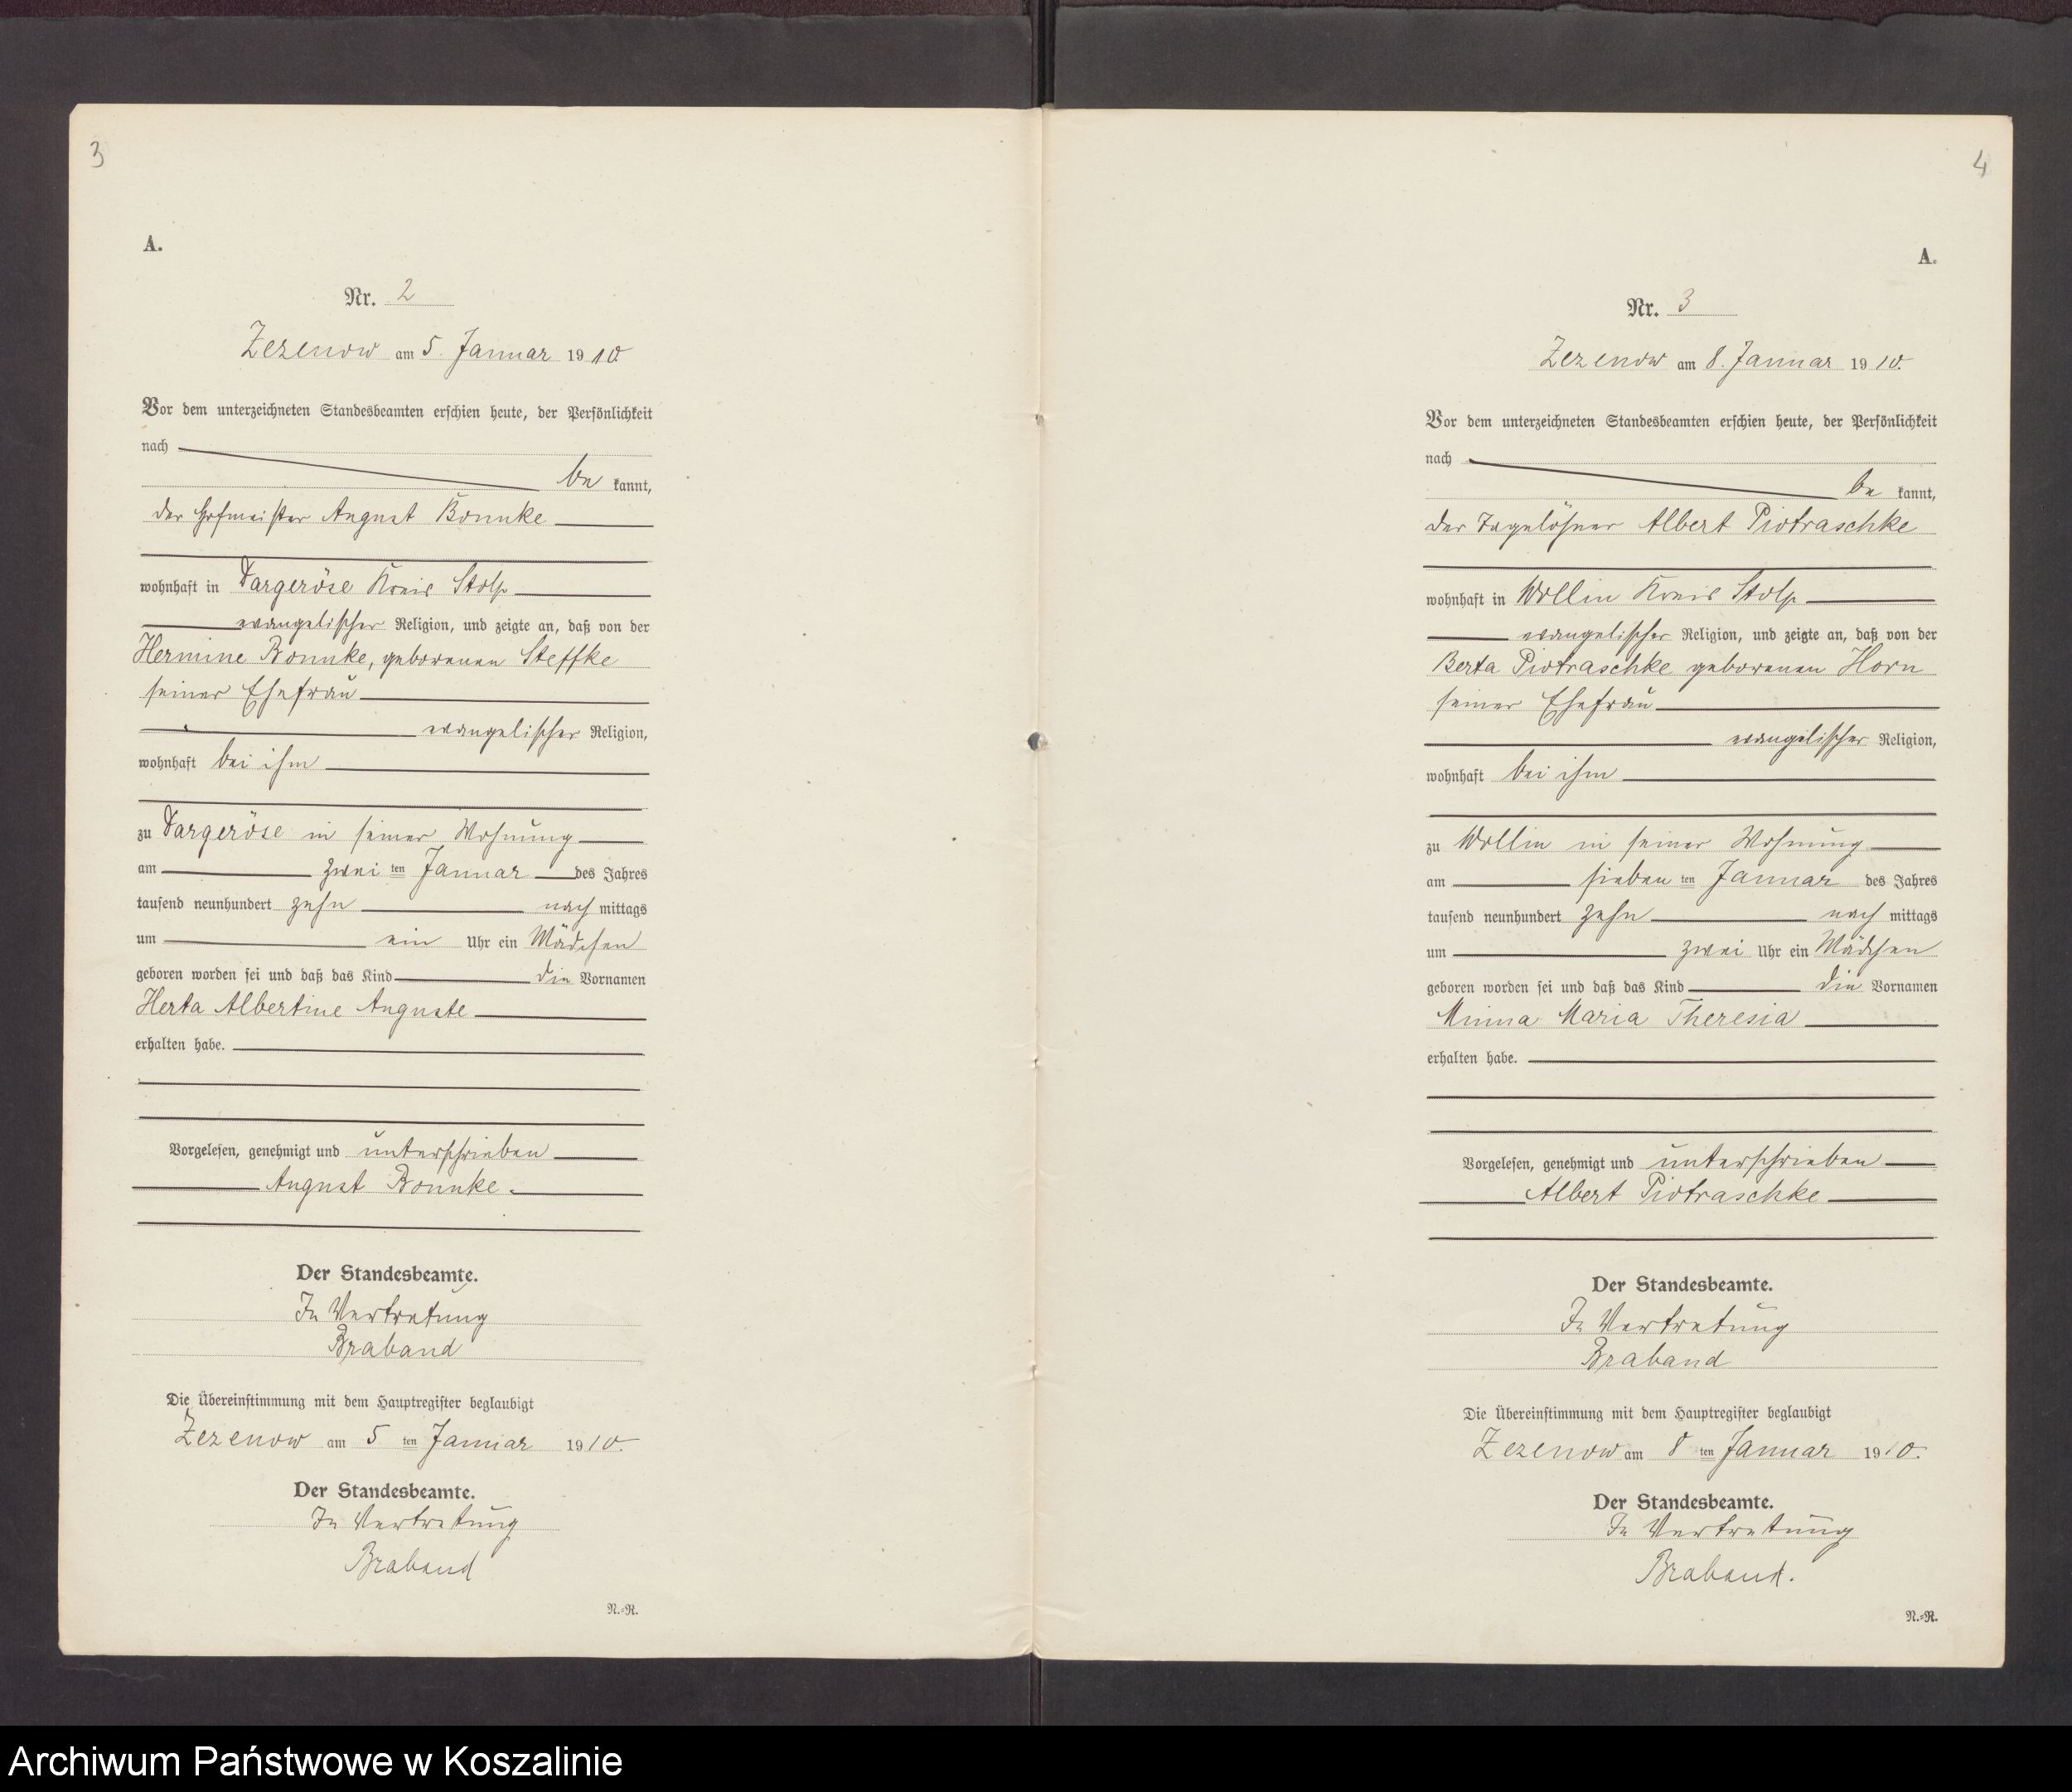 3
A.
Nr. 2
Zezenow am 5. Januar 1910.
Vor dem unterzeichneten Standesbeamten erschien heute, der Persönlichkeit
nach
be kannt,
der Hofmeister August Bonnke
wohnhaft in Dargeröse Kreis Stolp
evangelischer Religion, und zeigte an, daß von der
Hermine Bonnke, geborenen Steffke
seiner Ehefrau
evangelischer Religion,
wohnhaft bei ihm
zu Dargeröse in seiner Wohnung
am zwei ten Januar des Jahres
tausend neunhundert zehn nach mittags
um ein Uhr ein Mädchen
geboren worden sei und daß das Kind die Vornamen
Herta Albertine Auguste
erhalten habe.
Vorgelesen, genehmigt und unterschrieben
August Bonnke.
Der Standesbeamte.
In Vertretung
Braband
Die Übereinstimmung mit dem Hauptregister beglaubigt
Zezenow am 5 ten Januar 1910.
Der Standesbeamte.
In Vertretung
Braband
N.=R.
4
A.
Nr. 3
Zezenow am 8. Januar 1910.
Vor dem unterzeichneten Standesbeamten erschien heute, der Persönlichkeit
nach
be kannt,
der Tagelöhner Albert Piotraschke
wohnhaft in Wollin Kreis Stolp
evangelischer Religion, und zeigte an, daß von der
Berta Piotraschke geborenen Horn
seiner Ehefrau
evangelischer Religion,
wohnhaft bei ihm
zu Wollin in seiner Wohnung
am sieben ten Januar des Jahres
tausend neunhundert zehn nach mittags
um zwei Uhr ein Mädchen
geboren worden sei und daß das Kind die Vornamen
Minna Maria Theresia
erhalten habe.
Vorgelesen, genehmigt und unterschrieben
Albert Piotraschke
Der Standesbeamte.
In Vertretung
Braband
Die Übereinstimmung mit dem Hauptregister beglaubigt
Zezenow am 8 ten Januar 1910.
Der Standesbeamte.
In Vertretung
Braband.
N.=R.
Archiwum Państwowe w Koszalinie